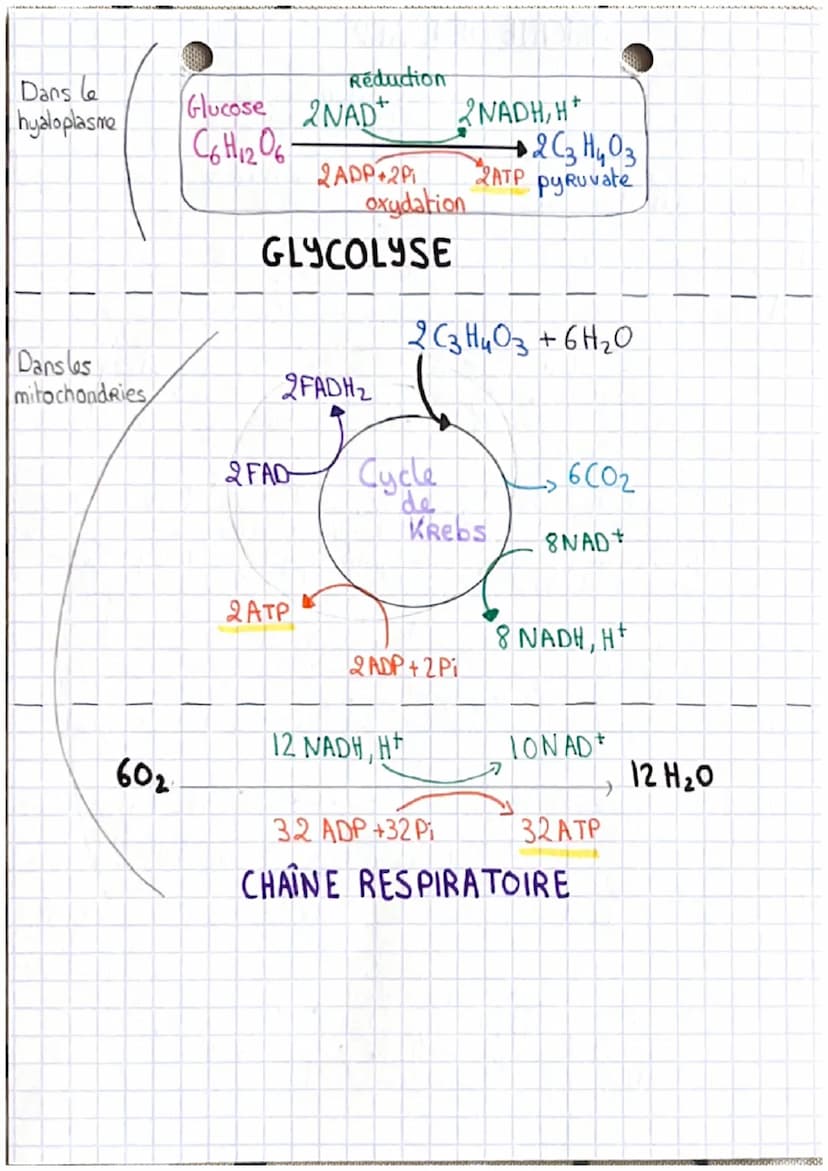 Dans le
hyaloplasme
Réduction
Glucose
2NAD⁺
2NADH, H⁺
C₆H₁₂O₆
2C₃H₄O₃
2ADP+2Pi
2ATP
pyruvate
oxydation
GLYCOLYSE
2C₃H₄O₃ + 6H₂O
Dans les
mitochondries
2FADH₂
2FAD
Cycle
de
Krebs
6CO₂
8NAD⁺
2ATP
8 NADH, H⁺
2ADP+2Pi
12 NADH, H⁺
10NAD⁺
6O₂
12 H₂O
32 ADP+32Pi
32ATP
CHAÎNE RESPIRATOIRE